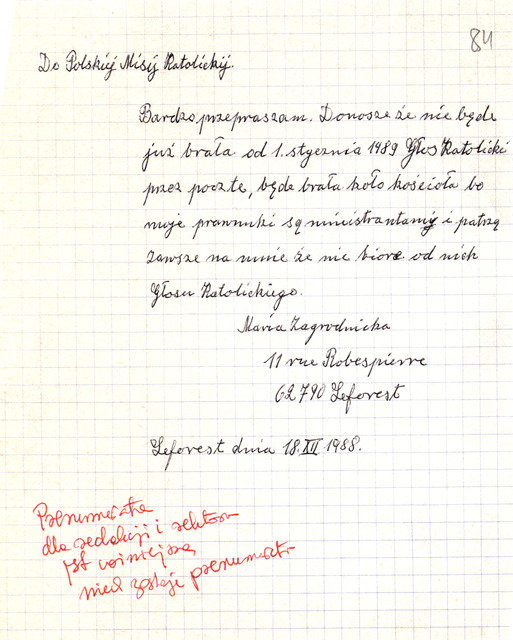 84
Do Polskiij Misij Katolickij.
Bardzo przepraszam. Donosze że nie będe
już brała od 1. stycznia 1989 Głos Katolicki
przez poczte, będe brała koło kościoła bo
moje prawnuki są ministrantamy i patrzą
zawsze na mnie że nie biore od nich
Głosu Katolickiego.
Maria Zagrodnicka
11 rue Robespierre
62790 Leforest
Leforest dnia 18.XII 1988.
Prenumerata
dla redakcji i rektora
jest ważniejsza,
niech zostaje prenumerata